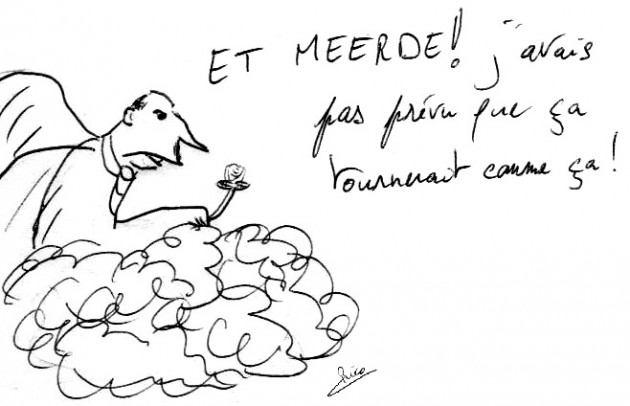 ET MEERDE! j'avais
pas prévu que ça
tournerait comme ça!